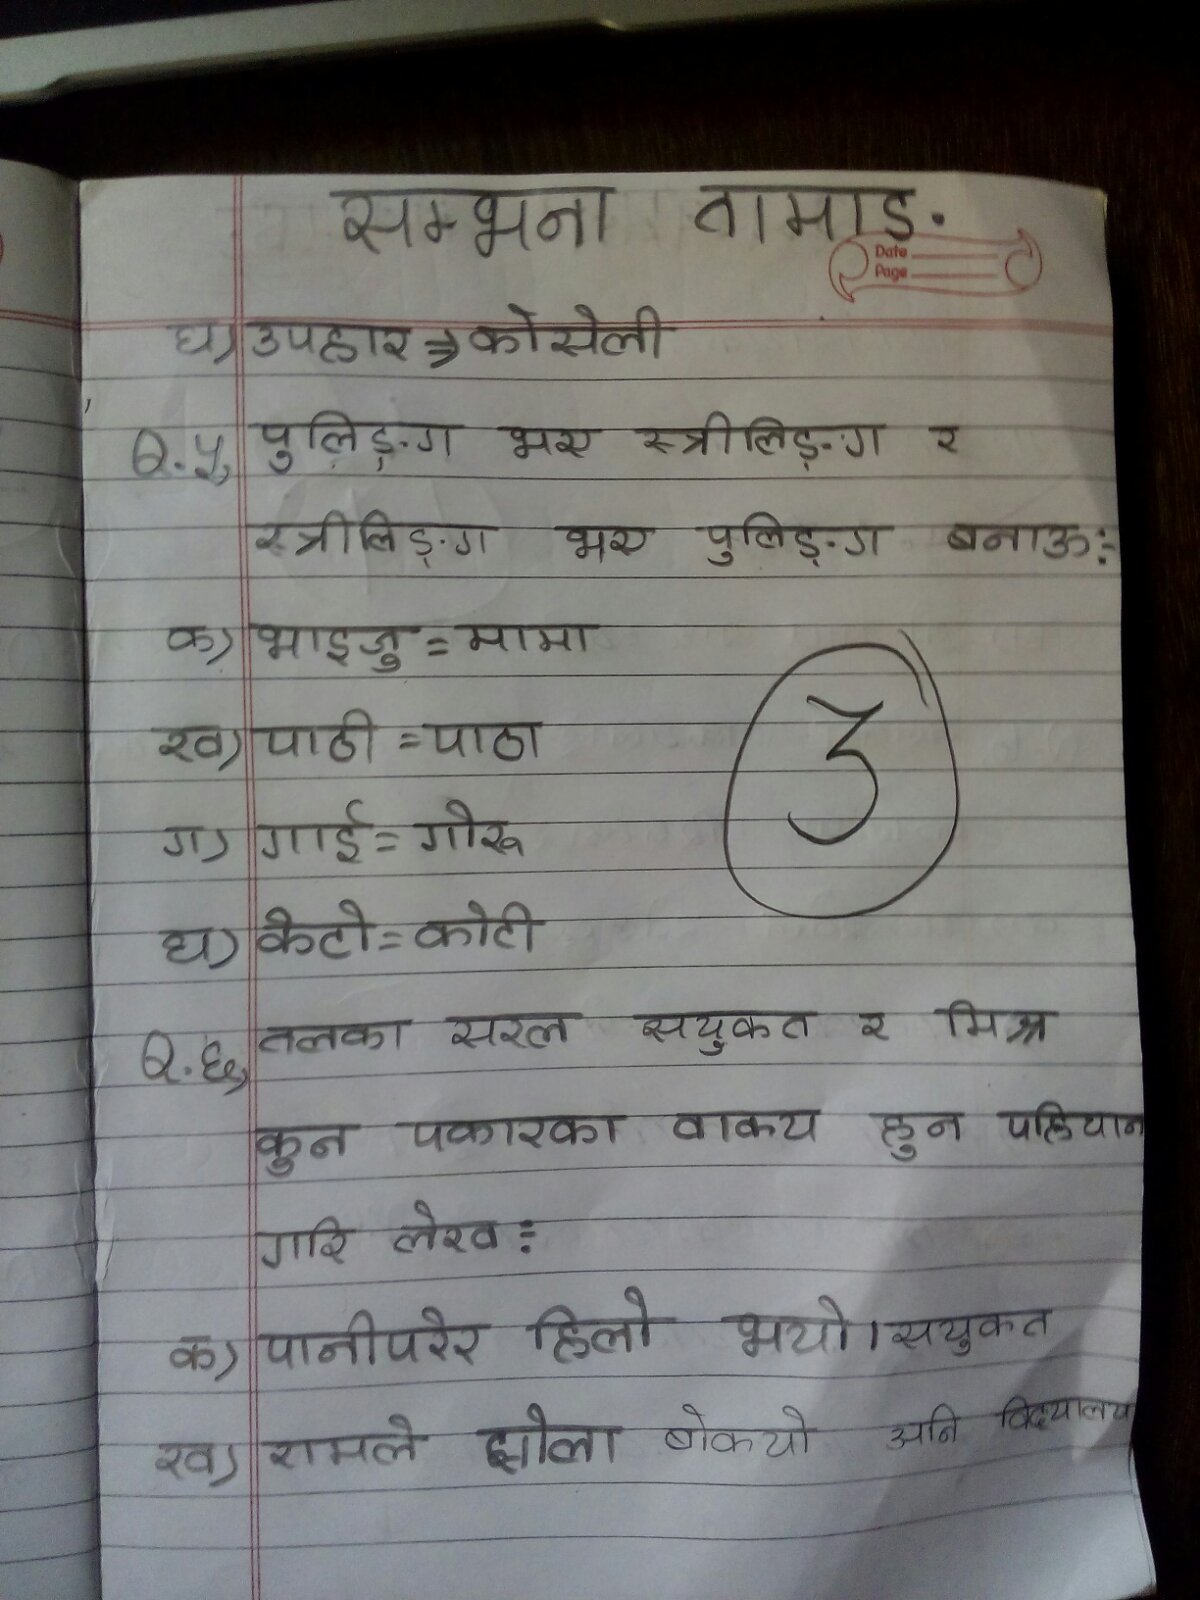 सम्झना तामाङ
Date
Page
घ) उपहार ⇒ कोसेली
Q.५, पुलिङ्ग भए स्त्रीलिङ्ग र
स्त्रीलिङ्ग भए पुलिङ्ग बनाऊ :-
क) माइजु = मामा
ख) पाठी = पाठा
ग) गाई = गोरू
घ) केटो = कोटी
३
Q.६, तलका सरल सयुकत र मिश्र
कुन पकारका वाकय हुन पहियान
गरि लेख :-
क) पानीपरेर हिलो भयो। सयुकत
ख) रामले झोला बोकयो अनि विदयालय